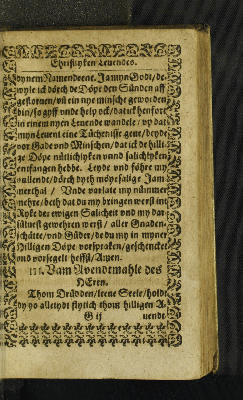 Christlyken Levendes.
dynem Namen deene. Jamyn Godt, de-
wyle ick dörch de Döpe den Sünden aff
gestorven, vn ein nye minsche geworden
bin, so gyff vnde help ock, dat ick henfort
in einem nyen Levende wandele, vp dat
myn Levent eine Tüchenisse geve, beyde
vor Gade vnd Minschen, dat ick de hilli-
ge Döpe nütlichyken vnnd salichlyken
entfangen hebbe. Leyde vnd föhre my
vullende, dörch dyth möyesalige Jam-
merthal, Vnde vorlate my nümmer
mehre, beth dat du my bringen werst int
Ryke der ewigen Salicheit vnd my dar-
sülvest gewehren werst, aller Gnaden-
schätte, vnd Güder, de du my in myner
Hilligen Döpe vorspraken, geschencket
vnd vorsegelt heffst, Amen.
III. Vam Avendtmahle des
HEren.
Thom Drüdden, leene Seele, holdt
dy yo alletydt flytich thom hilligen A-
G ij vendt-